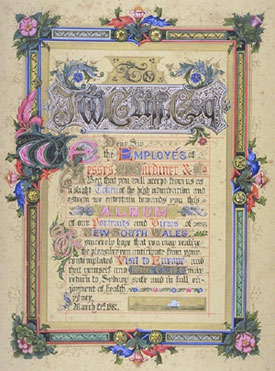 To
J W Cliff Esq
Dear Sir
the EMPLOYES of
Messrs Gardiner &
Beg that you will accept from us
a slight Token of the high admiration and
esteem we entertain towards you this
ALBUM
of our Portraits and Views of
NEW SOUTH WALES,
sincerely hope that you may realize
the pleasure you anticipate from your
contemplated Visit to Europe and
that yourself and may
return to Sydney safe and in full en-
joyment of health
Sydney
March